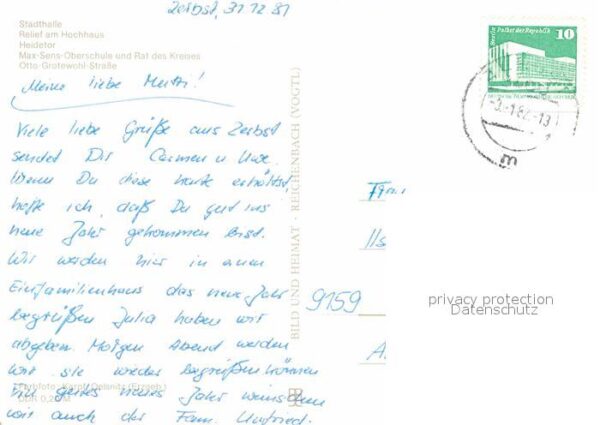 Zerbst, 31.12.81
Stadthalle
Relief am Hochhaus
Heidetor
Max-Sens-Oberschule und Rat des Kreises
Otto-Grotewohl-Straße
Meine liebe Mutti!
Viele liebe Grüße aus Zerbst
sendet Dir Carmen u. Uwe.
Wenn Du diese Karte erhältst,
hoffe ich, daß Du gut ins
neue Jahr gekommen bist.
Wir werden hier in einem
Einfamilienhaus das neue Jahr
begrüßen. Julia haben wir
abgegeben. Morgen Abend werden
wir sie wieder begrüßen können
Ein gutes neues Jahr wünschen
wir auch der Fam.
Farbfoto: Karpf, Oelsnitz (Erzgeb.)
DDR 0,20 M
BILD UND HEIMAT · REICHENBACH (VOGTL)
Berlin Palast der Republik
10
-3.-1.82-13
m
Frau
9159
privacy protection
Datenschutz